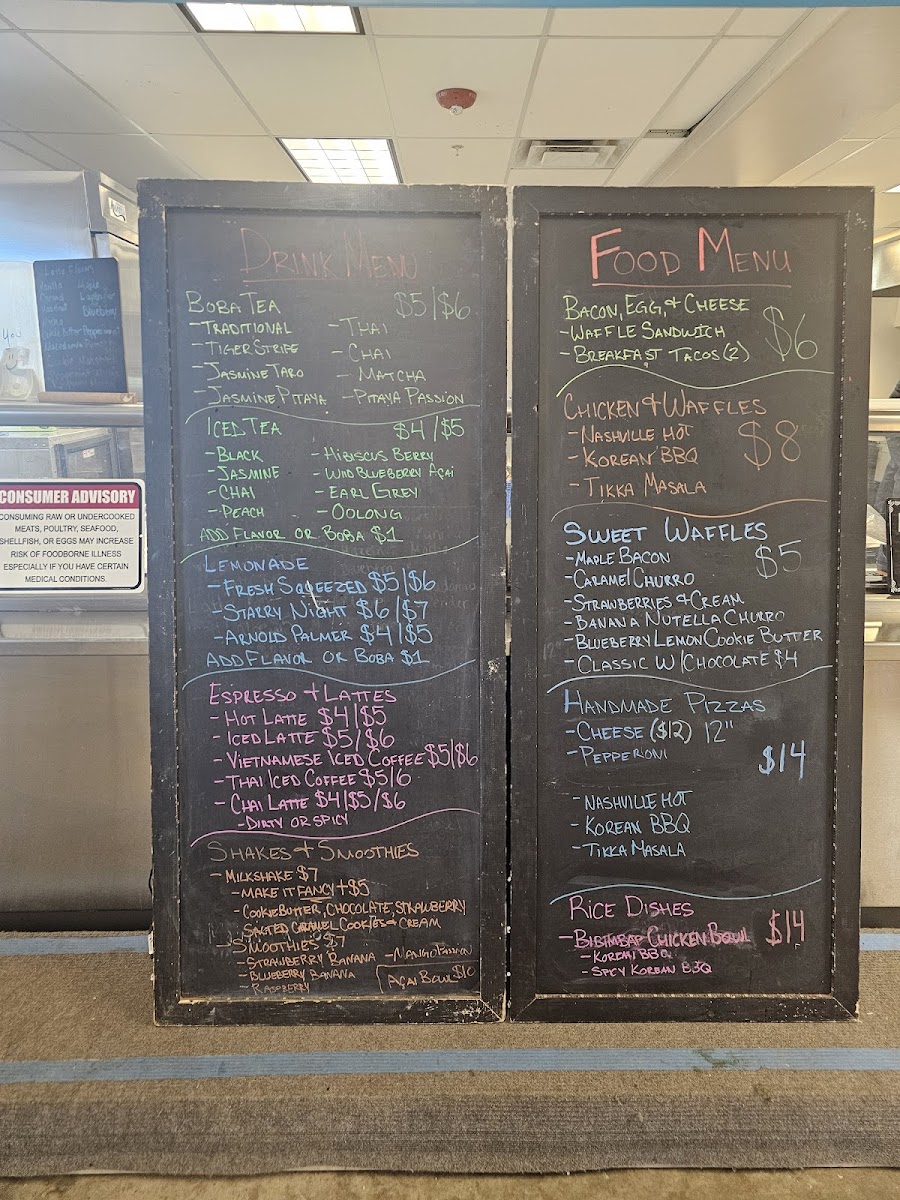 DRINK MENU
BOBA TEA $5/$6
-TRADITIONAL -THAI
-TIGER STRIPE -CHAI
-JASMINE TARO -MATCHA
-JASMINE PITAYA -PITAYA PASSION
ICED TEA $4/$5
-BLACK -HIBISCUS BERRY
-JASMINE -WILD BLUEBERRY AÇAI
-CHAI -EARL GREY
-PEACH -OOLONG
ADD FLAVOR OR BOBA $1
LEMONADE
-FRESH SQUEEZED $5/$6
-STARRY NIGHT $6/$7
-ARNOLD PALMER $4/$5
ADD FLAVOR OR BOBA $1
ESPRESSO + LATTES
-HOT LATTE $4/$5
-ICED LATTE $5/$6
-VIETNAMESE ICED COFFEE $5/$6
-THAI ICED COFFEE $5/6
-CHAI LATTE $4/$5/$6
-DIRTY OR SPICY
SHAKES + SMOOTHIES
-MILKSHAKE $7
-MAKE IT FANCY +$5
-COOKIE BUTTER, CHOCOLATE, STRAWBERRY
SALTED CARAMEL COOKIES & CREAM
-SMOOTHIES $7
-STRAWBERRY BANANA -MANGO PASSION
-BLUEBERRY BANANA
-RASPBERRY
AÇAI BOWL $10
FOOD MENU
BACON, EGG, + CHEESE
-WAFFLE SANDWICH $6
-BREAKFAST TACOS (2)
CHICKEN & WAFFLES
-NASHVILLE HOT $8
-KOREAN BBQ
-TIKKA MASALA
SWEET WAFFLES
-MAPLE BACON $5
-CARAMEL CHURRO
-STRAWBERRIES & CREAM
-BANANA NUTELLA CHURRO
-BLUEBERRY LEMON COOKIE BUTTER
-CLASSIC W/CHOCOLATE $4
HANDMADE PIZZAS
-CHEESE ($12) 12"
-PEPPERONI $14
-NASHVILLE HOT
-KOREAN BBQ
-TIKKA MASALA
RICE DISHES
-BIBIMBAP CHICKEN BOWL $14
-KOREAN BBQ
-SPICY KOREAN BBQ
CONSUMER ADVISORY
CONSUMING RAW OR UNDERCOOKED
MEATS, POULTRY, SEAFOOD,
SHELLFISH, OR EGGS MAY INCREASE
RISK OF FOODBORNE ILLNESS
ESPECIALLY IF YOU HAVE CERTAIN
MEDICAL CONDITIONS.